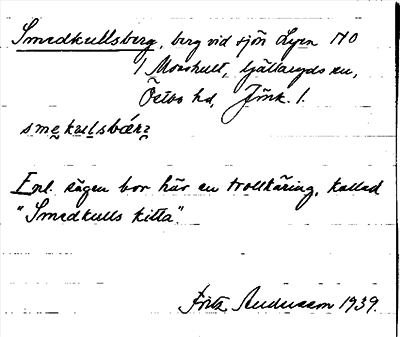 Smedkullsberg, berg vid sjön Lyen NO
Moashult, Kjällaryds sn,
Östbo hd, Jönk. l.
Enl. sägen bor här en trollkäring, kallad
"Smedkulls Kitta".
Fritz Andersson 1939.